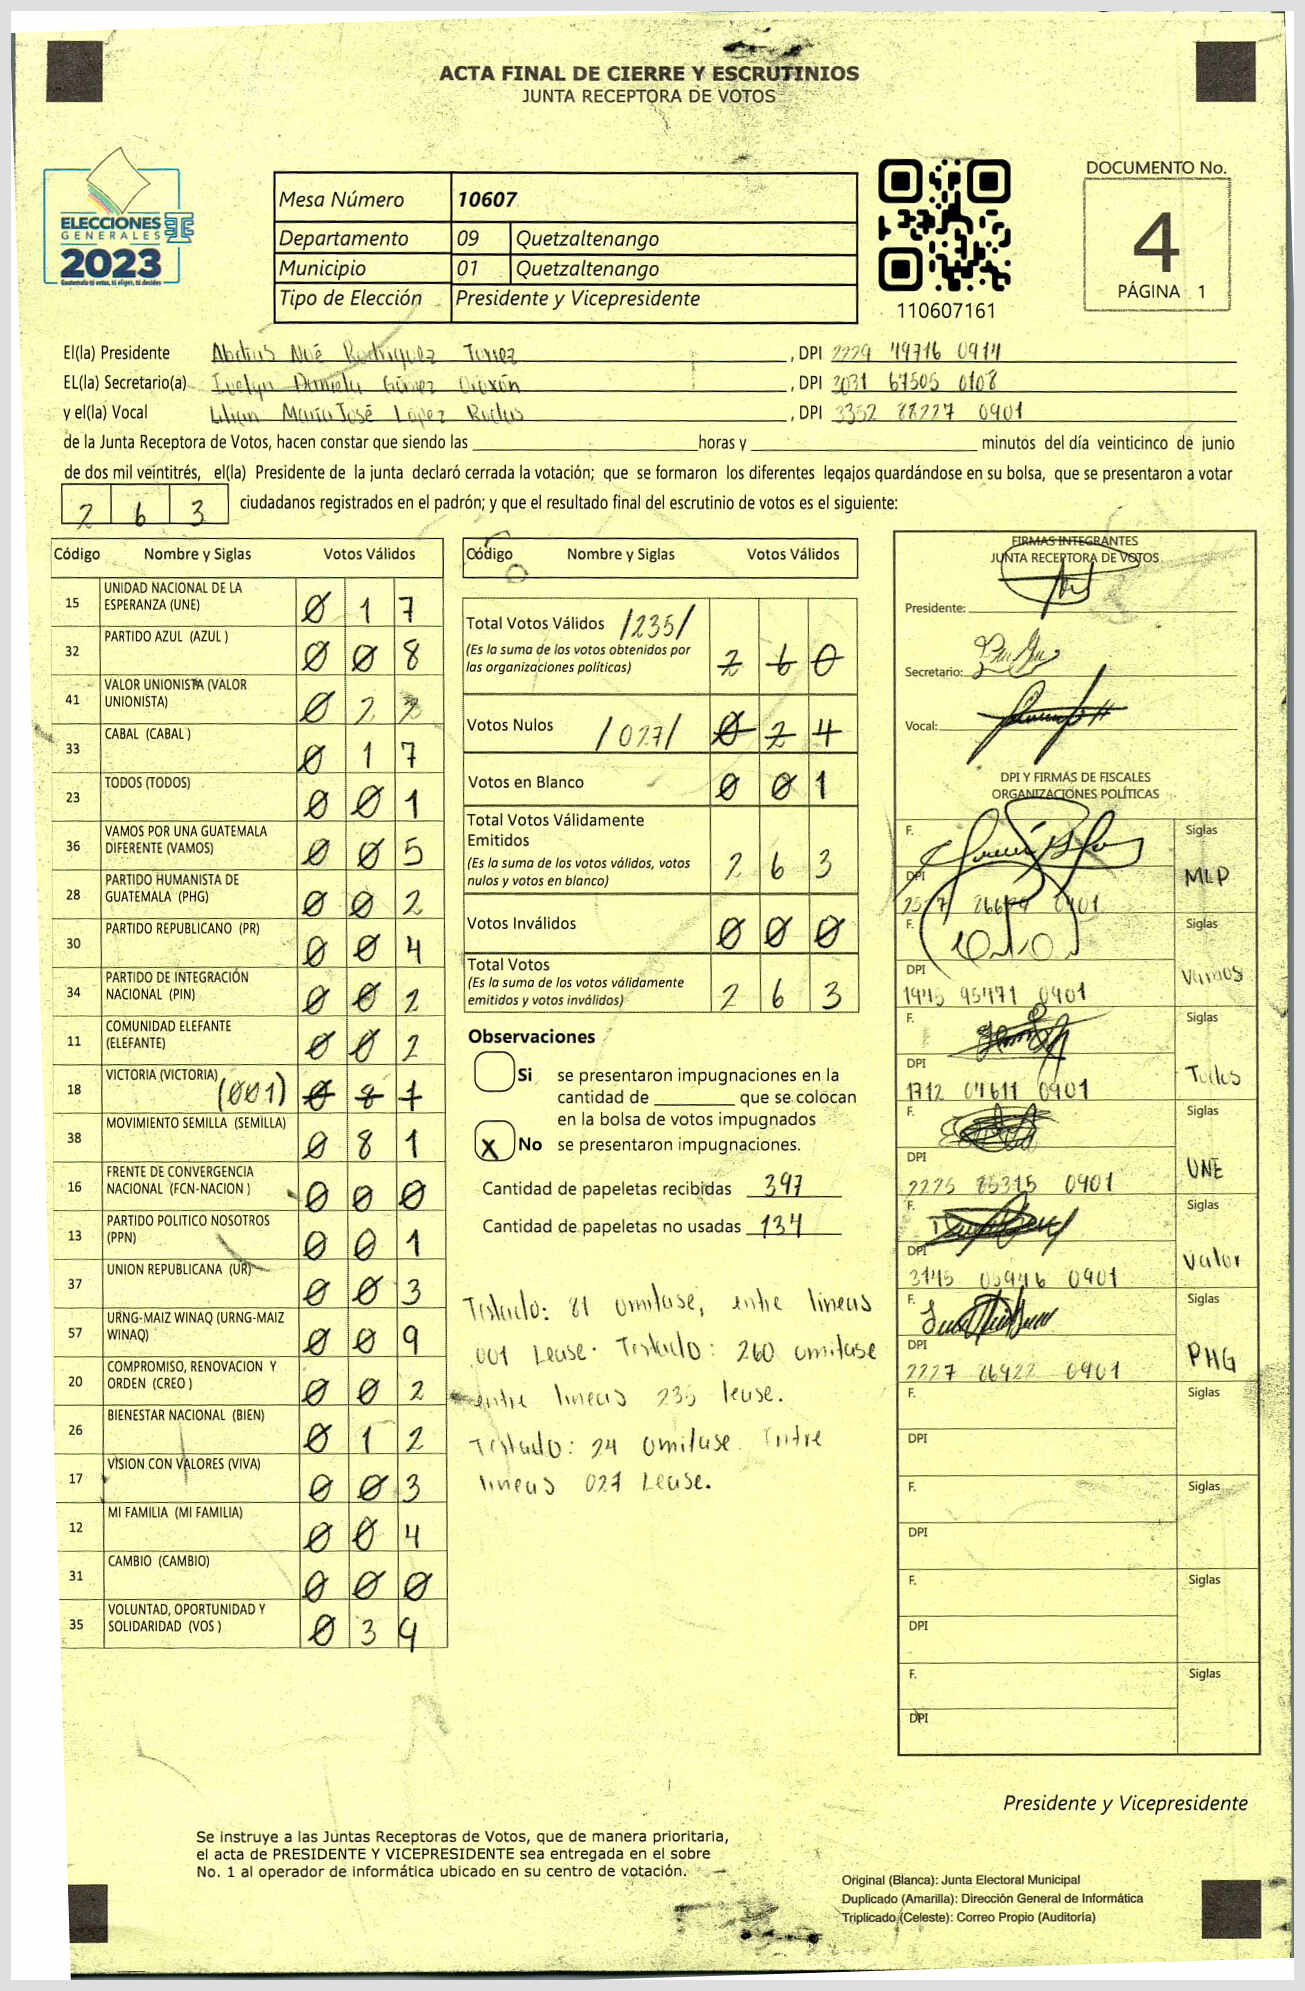 ACTA FINAL DE CIERRE Y ESCRUTINIOS
JUNTA RECEPTORA DE VOTOS
ELECCIONES
GENERALES
2023
Guatemala tú votas, tú eliges, tú decides
Mesa Número 10607
Departamento 09 Quetzaltenango
Municipio 01 Quetzaltenango
Tipo de Elección Presidente y Vicepresidente
110607161
DOCUMENTO No.
4
PÁGINA 1
El(la) Presidente Noé Rodriguez , DPI 2229 49716 0914
EL(la) Secretario(a) Evelyn Daniela Gómez , DPI 2031 67505 0108
y el(la) Vocal Lilian María José López , DPI 3352 88227 0901
de la Junta Receptora de Votos, hacen constar que siendo las horas y minutos del día veinticinco de junio
de dos mil veintitrés, el(la) Presidente de la junta declaró cerrada la votación; que se formaron los diferentes legajos guardándose en su bolsa, que se presentaron a votar
2 6 3 ciudadanos registrados en el padrón; y que el resultado final del escrutinio de votos es el siguiente:
Código Nombre y Siglas Votos Válidos
15 UNIDAD NACIONAL DE LA ESPERANZA (UNE) 0 1 7
32 PARTIDO AZUL (AZUL ) 0 0 8
41 VALOR UNIONISTA (VALOR UNIONISTA) 0 2 2
33 CABAL (CABAL ) 0 1 7
23 TODOS (TODOS) 0 0 1
36 VAMOS POR UNA GUATEMALA DIFERENTE (VAMOS) 0 0 5
28 PARTIDO HUMANISTA DE GUATEMALA (PHG) 0 0 2
30 PARTIDO REPUBLICANO (PR) 0 0 4
34 PARTIDO DE INTEGRACIÓN NACIONAL (PIN) 0 0 2
11 COMUNIDAD ELEFANTE (ELEFANTE) 0 0 2
18 VICTORIA (VICTORIA) (001) 0 8 1
38 MOVIMIENTO SEMILLA (SEMILLA) 0 8 1
16 FRENTE DE CONVERGENCIA NACIONAL (FCN-NACION ) 0 0 0
13 PARTIDO POLITICO NOSOTROS (PPN) 0 0 1
37 UNION REPUBLICANA (UR) 0 0 3
57 URNG-MAIZ WINAQ (URNG-MAIZ WINAQ) 0 0 9
20 COMPROMISO, RENOVACION Y ORDEN (CREO ) 0 0 2
26 BIENESTAR NACIONAL (BIEN) 0 1 2
17 VISION CON VALORES (VIVA) 0 0 3
12 MI FAMILIA (MI FAMILIA) 0 0 4
31 CAMBIO (CAMBIO) 0 0 0
35 VOLUNTAD, OPORTUNIDAD Y SOLIDARIDAD (VOS ) 0 3 9
Código Nombre y Siglas Votos Válidos
Total Votos Válidos /235/ 2 6 0
(Es la suma de los votos obtenidos por
las organizaciones políticas)
Votos Nulos /027/ 0 2 4
Votos en Blanco 0 0 1
Total Votos Válidamente
Emitidos 2 6 3
(Es la suma de los votos válidos, votos
nulos y votos en blanco)
Votos Inválidos 0 0 0
Total Votos 2 6 3
(Es la suma de los votos válidamente
emitidos y votos inválidos)
Observaciones
Si se presentaron impugnaciones en la
cantidad de que se colocan
en la bolsa de votos impugnados
x No se presentaron impugnaciones.
Cantidad de papeletas recibidas 397
Cantidad de papeletas no usadas 134
Testado: 81 omitase, entre lineas
001 Lease. Testado: 260 omitase
entre lineas 235 lease.
Testado: 24 omitase. Entre
lineas 027 Lease.
FIRMAS INTEGRANTES
JUNTA RECEPTORA DE VOTOS
Presidente:
Secretario:
Vocal:
DPI Y FIRMAS DE FISCALES
ORGANIZACIONES POLÍTICAS
F. Siglas
DPI MLP
0901
F. Siglas
DPI Vamos
1945 95471 0901
F. Siglas
DPI Todos
1712 04611 0901
F. Siglas
DPI UNE
2225 85315 0901
F. Siglas
DPI Valor
3145 05946 0901
F. Siglas
DPI PHG
2227 06922 0901
F. Siglas
DPI
F. Siglas
DPI
F. Siglas
DPI
F. Siglas
DPI
Presidente y Vicepresidente
Se instruye a las Juntas Receptoras de Votos, que de manera prioritaria,
el acta de PRESIDENTE Y VICEPRESIDENTE sea entregada en el sobre
No. 1 al operador de informática ubicado en su centro de votación.
Original (Blanca): Junta Electoral Municipal
Duplicado (Amarilla): Dirección General de Informática
Triplicado (Celeste): Correo Propio (Auditoría)